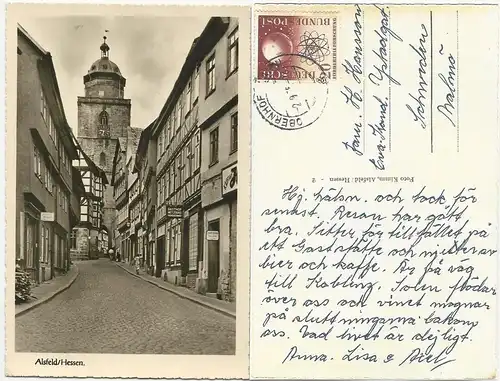 Alsfeld/Hessen.
DEUTSCHE
BUNDESPOST
20
OBERNHOF
Fam. K. Hansson
Eva-Kond. Ystadgat.
Schweden
Malmö
Foto Klimm, Alsfeld/Hessen - 2
Hj. hälsn. och tack för
senast. Resan har gått
bra. Sitter för tillfället på
ett Gaststätte och njuter av
bier och kaffe. Är på väg
till Koblinz. Solen flödar
över oss och vinet mognar
på sluttningarna bakom
oss. Vad livet är dejligt.
Anna-Lisa & Axel